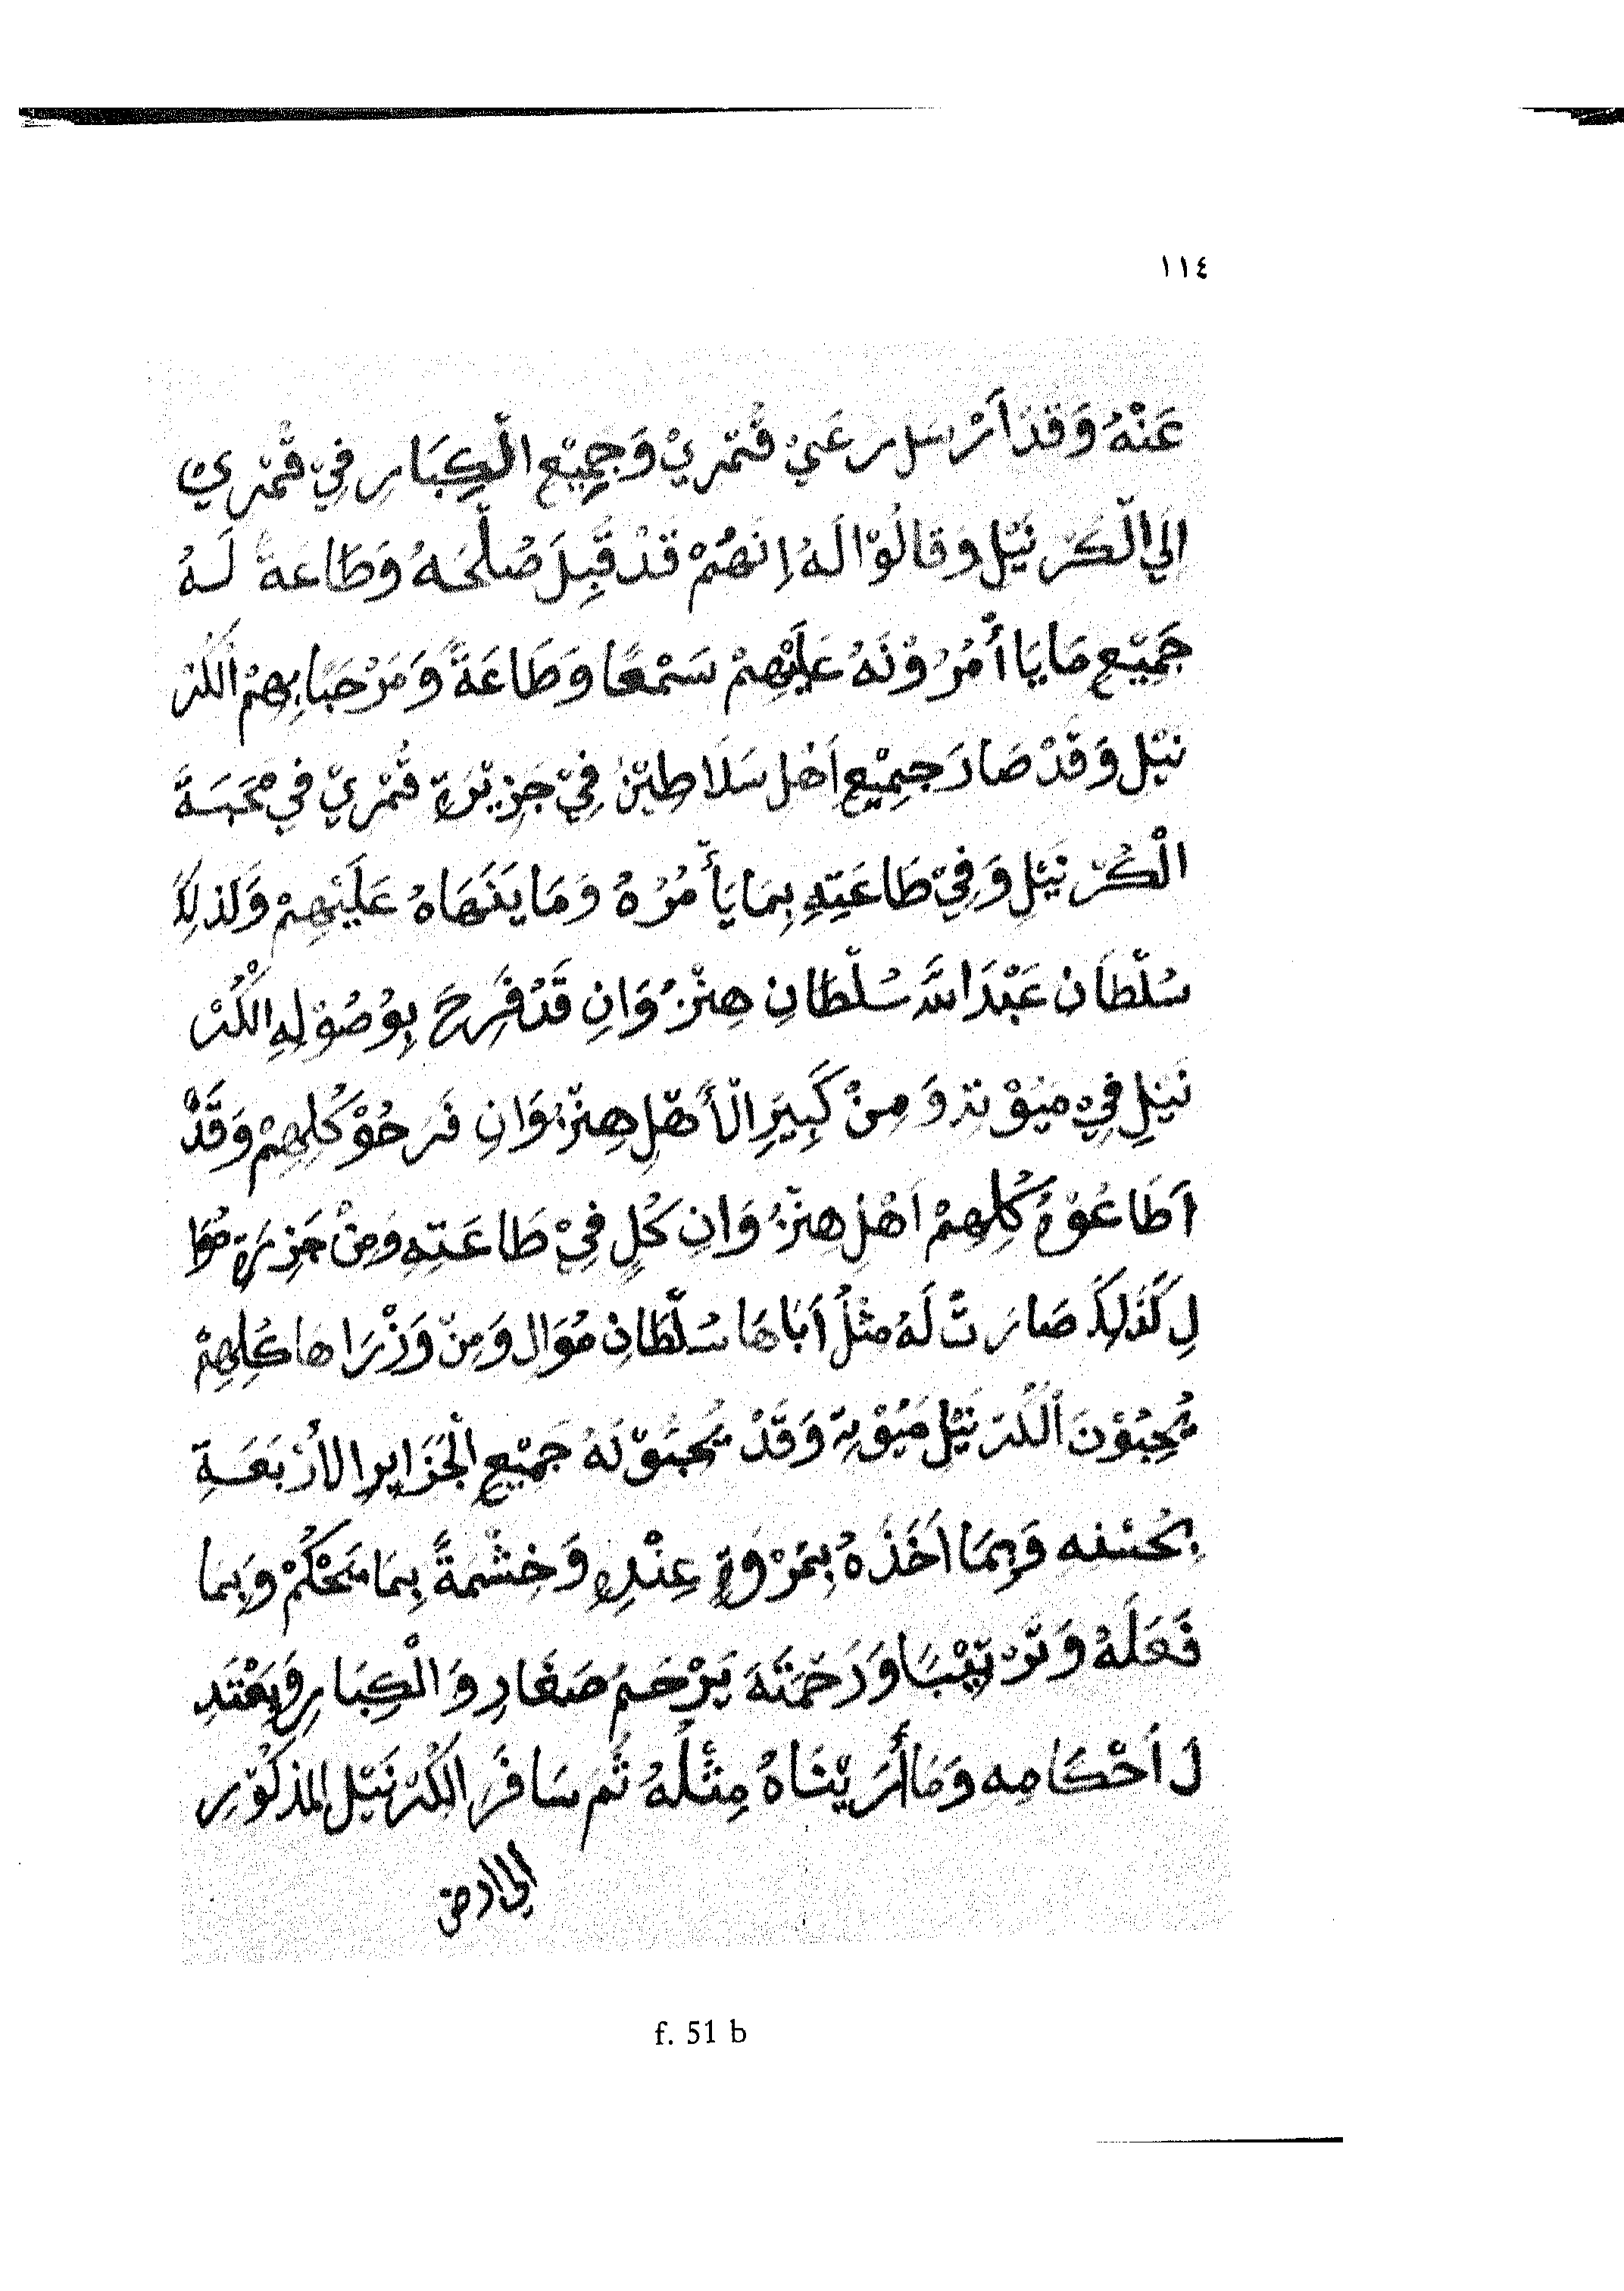 ١١٤
عَنْهُ وَقَدْ اَرْسَل رعَيْ قُمْرِيْ وَجَمِيْع الْكِبَارِ فِيْ قُمْرِيْ
اِلَي الْكُرْنَيْلِ وَقَالُوْا لَهُ اِنَهُمْ قَدْ قَبِلَ صُلْحَهُ وَطَاعَةً لَهُ
جَمِيْعِ مَا يَا أْمُرُوْنَهُ عَلَيْهِمْ سَمْعًا وَطَاعَةً وَمَرْحَبًا بِهِمْ اَلْكُرْ
نَيْلِ وَقَدْ صَارَ جِمِيْعِ اَهْل سَلَاطِيْنُ فِيْ جَزِيْرَةِ قُمْرِيْ فِي مَحَبَةَ
الْكُرْنَيْلِ وَفِيْ طَاعَتِهِ بِمَا يَأْمُرُهُ وَمَا يَنَهَاهُ عَلَيْهِمْ وَلَذلِكَ
سُلْطَان عَبْدَ اللَّه سُلْطَانِ هِنْزُوَانِ قَدْ فَرِحَ بِوُصُوْلِهِ الْكُرْ
نَيْلِ فِيْ مَيُوْتِهِ وَمِنْ كَبِيَرِ الْأَهْلِ هِنْزُوَانِ فَرَحُوْ كُلِهِمْ وَقَدْ
اَطَاعُوْهُ كُلِهِمْ اَهْلِ هِنْزُوَانِ كُلٍ فِيْ طَاعَتِهِ وَمِنْ جَزِرَةِ مُوَا
لِ كَذَلِكَ صَارَتْ لَهُ مِثْلُ اَبَاهَا سُلْطَانِ مُوَالِ وَمِنْ وَزْرَاهَا كُلِهِمْ
يُحِبُوْنَ اَلْكُرْنَيْلِ مَيُوْتِهِ وَقَدْ يُحِبُوْ لَهُ جَمِيْعِ الْجَزَايِرِ الْأرْبَعَةِ
بِحُسْنِه وَبِمَا اَخَذَهُ بِمَرْوَةٍ عِنْدِهِ وَخِشْمَةً بِمَا يَحْكُمْ وَبِمَا
فَعَلَهُ وَتَرْتِيْبًا وَرَحْمَتَهَ يَرْحَمُ صَغَارِ وَالْكِبَارِ وَيَعْتَدِ
لَ اَحْكَامِه وَمَا أَرَيْنَاهُ مِثْلَهُ ثُمَ سَافَرَ الْكُرْنَيْل المذْكُوْرِ
الي ارض
f. 51 b